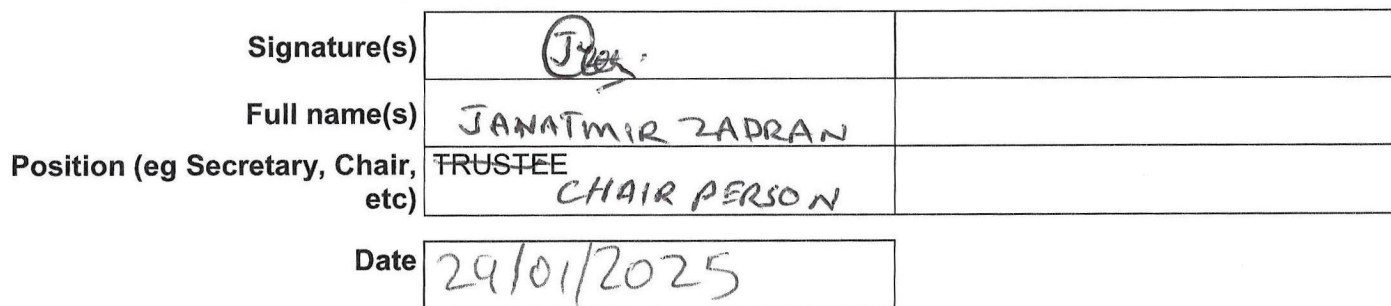 Signature(s)
Full name(s) JANATMIR ZADRAN
Position (eg Secretary, Chair, etc) TRUSTEE
CHAIR PERSON
Date 29/01/2025